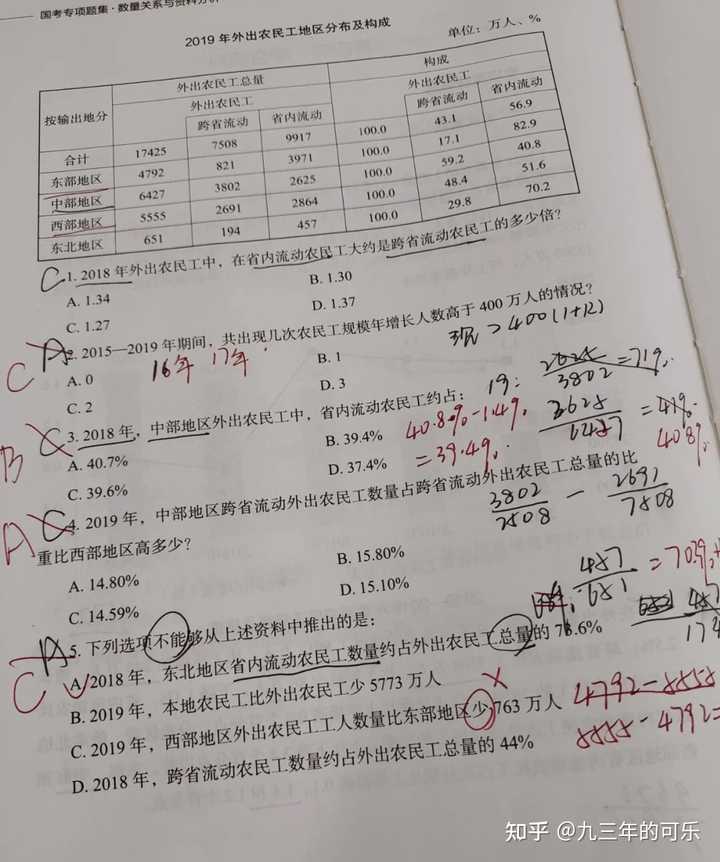 国考专项题集·数量关系与资料分析
2019年外出农民工地区分布及构成
单位：万人、%
按输出地分 外出农民工总量 构成
外出农民工 外出农民工
跨省流动 省内流动 跨省流动 省内流动
合计 17425 7508 9917 100.0 43.1 56.9
东部地区 4792 821 3971 100.0 17.1 82.9
中部地区 6427 3802 2625 100.0 59.2 40.8
西部地区 5555 2691 2864 100.0 48.4 51.6
东北地区 651 194 457 100.0 29.8 70.2
C 1. 2018年外出农民工中，在省内流动农民工大约是跨省流动农民工的多少倍？
A. 1.34 B. 1.30
C. 1.27 D. 1.37
A 2. 2015—2019年期间，共出现几次农民工规模年增长人数高于400万人的情况？
C 16年 17年 现>400(1+R)
A. 0 B. 1
C. 2 D. 3
C 3. 2018年，中部地区外出农民工中，省内流动农民工约占：
B 19: 2625/3802=71%
A. 40.7% B. 39.4% 40.8%-1.4% 2625/6427=41%
C. 39.6% D. 37.4% =39.4% 40.8%
C 4. 2019年，中部地区跨省流动外出农民工数量占跨省流动外出农民工总量的比
A 重比西部地区高多少？ 3802/7508 - 2691/7508
A. 14.80% B. 15.80%
C. 14.59% D. 15.10% 457/651=70%+
A 5. 下列选项不能够从上述资料中推出的是：
C A. 2018年，东北地区省内流动农民工数量约占外出农民工总量的73.6%
B. 2019年，本地农民工比外出农民工少5773万人
C. 2019年，西部地区外出农民工工人数量比东部地区少763万人 4792-5555
D. 2018年，跨省流动农民工数量约占外出农民工总量的44% 5555-4792=
知乎 @九三年的可乐